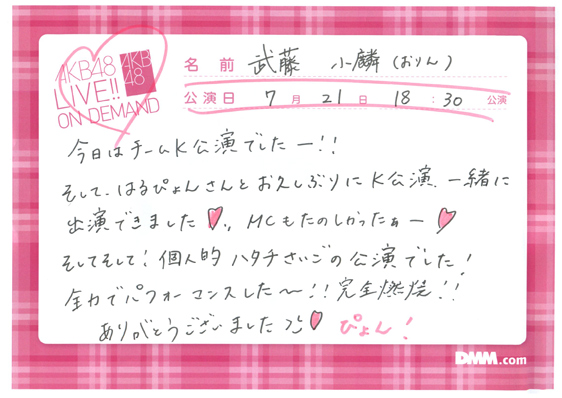 AKB48
LIVE!!
ON DEMAND
AKB
48
名前 武藤 小麟(おりん)
公演日 7月21日 18:30 公演
今日はチームK公演でしたー!!
そして、はるぴょんさんとお久しぶりにK公演、一緒に
出演できました♥、MCもたのしかったぁー♥
そしてそして!個人的ハタチさいごの公演でした!
全力でパフォーマンスした〜!!完全燃焼!!
ありがとうございました♥ ぴょん!
DMM.com